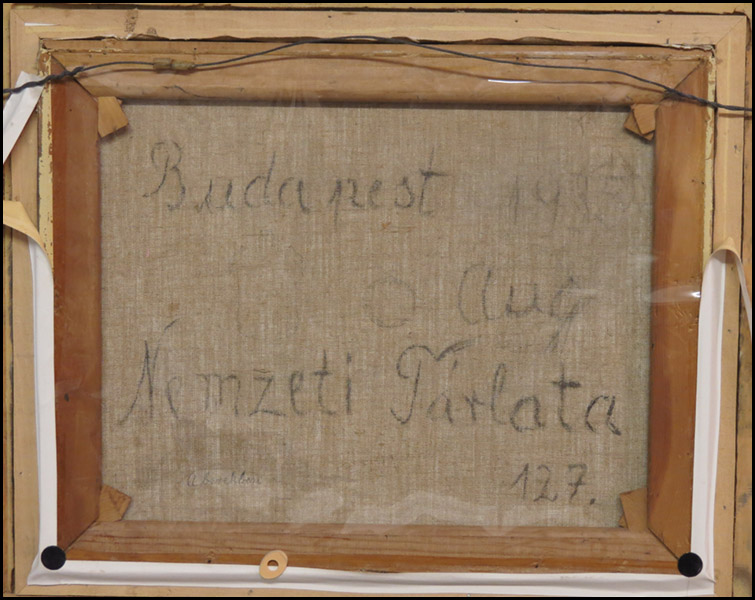 Budapest
Aug
Nemzeti Tárlata
127.